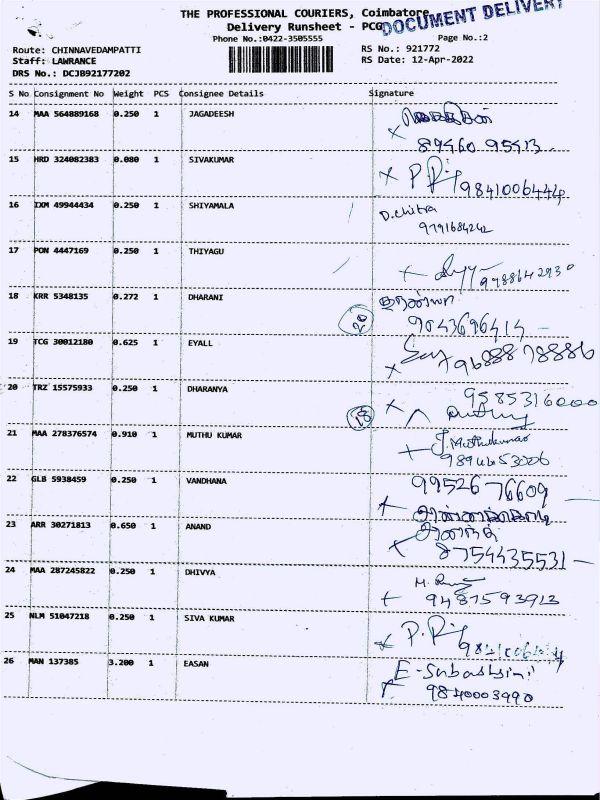 THE PROFESSIONAL COURIERS, Coimbatore
DOCUMENT DELIVERY
Delivery Runsheet - PCG
Phone No.:0422-3505555
Page No.:2
Route: CHINNAVEDAMPATTI
RS No.: 921772
Staff: LAWRANCE
RS Date: 12-Apr-2022
DRS No.: DCJB92177202
S No Consignment No Weight PCS Consignee Details Signature
14 MAA 564889168 0.250 1 JAGADEESH
89460 95413
15 HRD 324082383 0.080 1 SIVAKUMAR
9841006444
16 IXM 49944434 0.250 1 SHIYAMALA D.chitra
9791684242
17 PON 4447169 0.250 1 THIYAGU
9788642930
18 KRR 5348135 0.272 1 DHARANI
9043696414
19 TCG 30012180 0.625 1 EYALL
20 TRZ 15575933 0.250 1 DHARANYA
9585316000
21 MAA 278376574 0.910 1 MUTHU KUMAR J.Muthukumar
22 GLB 5938459 0.250 1 VANDHANA 99526 76609
23 ARR 30271813 0.650 1 ANAND ஆனந்த்
8754435531
24 MAA 287245822 0.250 1 DHIVYA
9487593913
25 NLM 51047218 0.250 1 SIVA KUMAR
26 MAN 137385 3.200 1 EASAN E-Subashini
9840003990